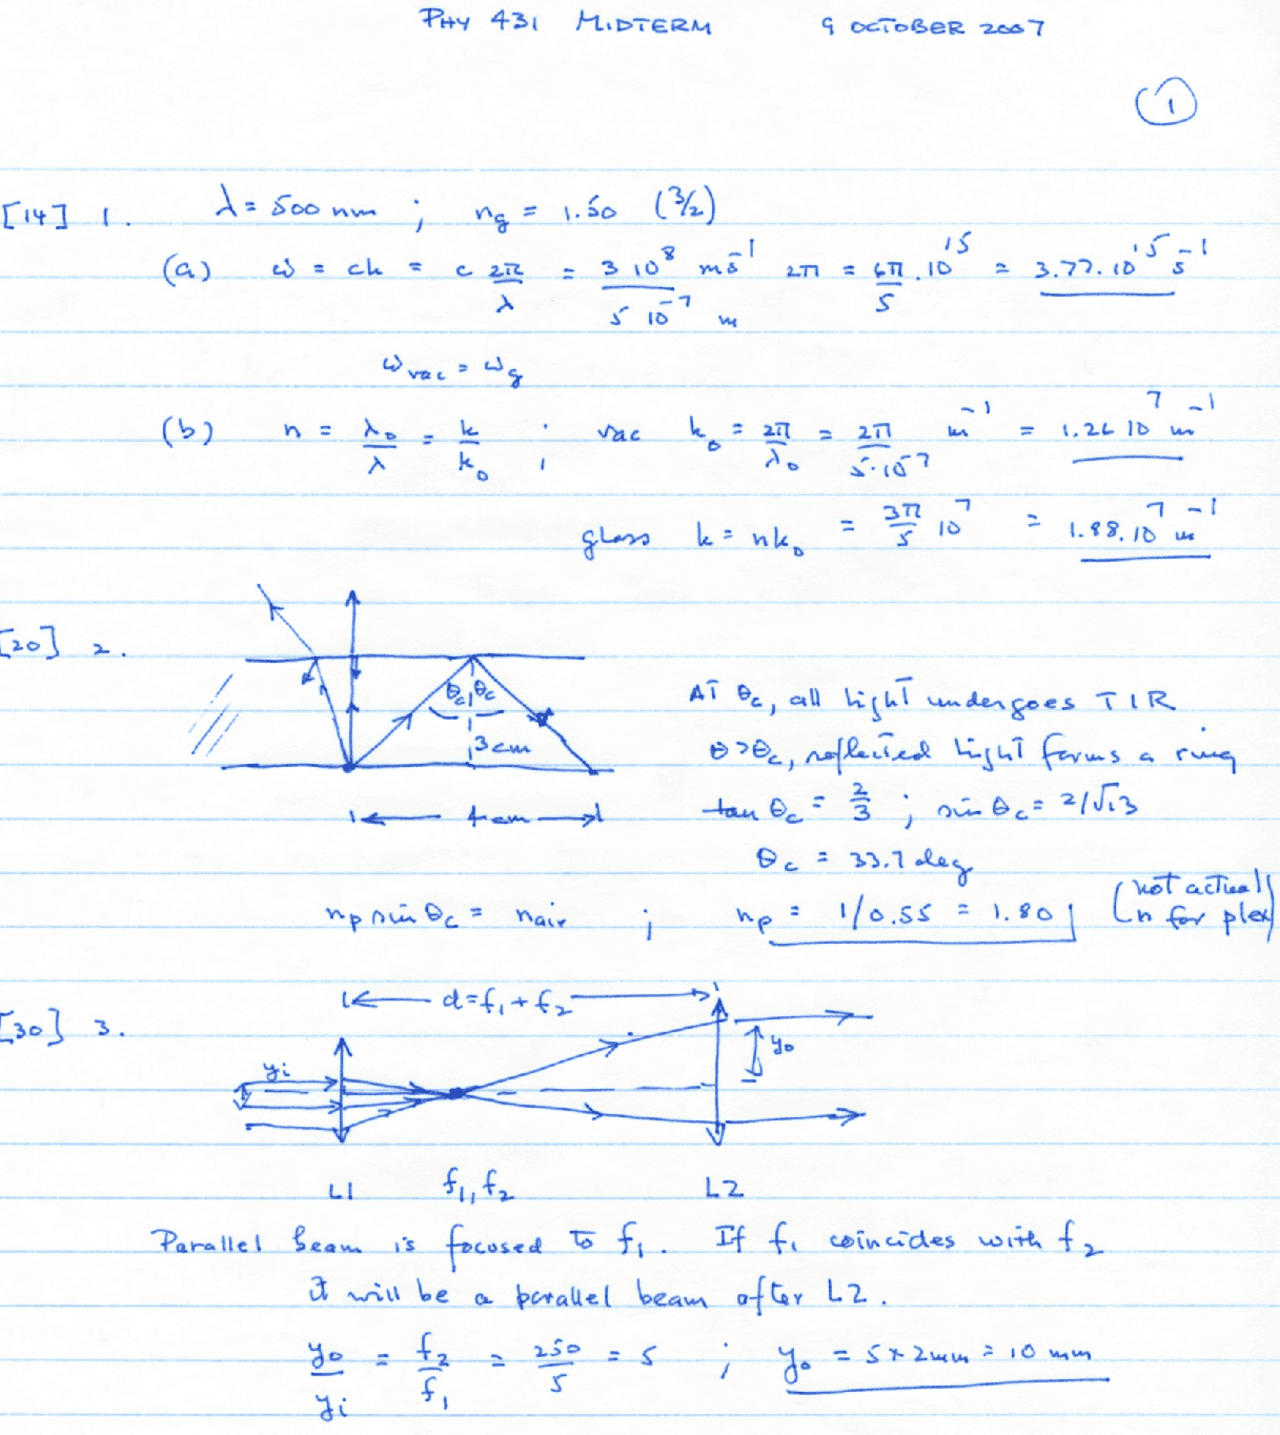 PHY 431 MIDTERM 9 OCTOBER 2007
1
[14] 1. λ = 500 nm ; n_g = 1.50 (3/2)
(a) ω = ck = c 2π/λ = 3 10^8 ms^-1 / 5 10^-7 m 2π = 6π/5 . 10^15 = 3.77. 10^15 s^-1
ω_vac = ω_g
(b) n = λ_0/λ = k/k_0 ; vac k_0 = 2π/λ_0 = 2π/5·10^-7 m^-1 = 1.26 10^7 m^-1
glass k = nk_0 = 3π/5 10^7 = 1.88. 10^7 m^-1
[20] 2.
θ_c θ_c
3cm
4cm
AT θ_c, all light undergoes TIR
θ>θ_c, reflected light forms a ring
tan θ_c = 2/3 ; sin θ_c = 2/√13
θ_c = 33.7 deg
n_p sin θ_c = n_air ; n_p = 1/0.55 = 1.80 (not actual n for plex)
[30] 3.
d=f_1+f_2
y_i
y_o
L1 f_1, f_2 L2
Parallel beam is focused to f_1. If f_1 coincides with f_2
it will be a parallel beam after L2.
y_o/y_i = f_2/f_1 = 250/5 = 5 ; y_o = 5 × 2mm = 10 mm